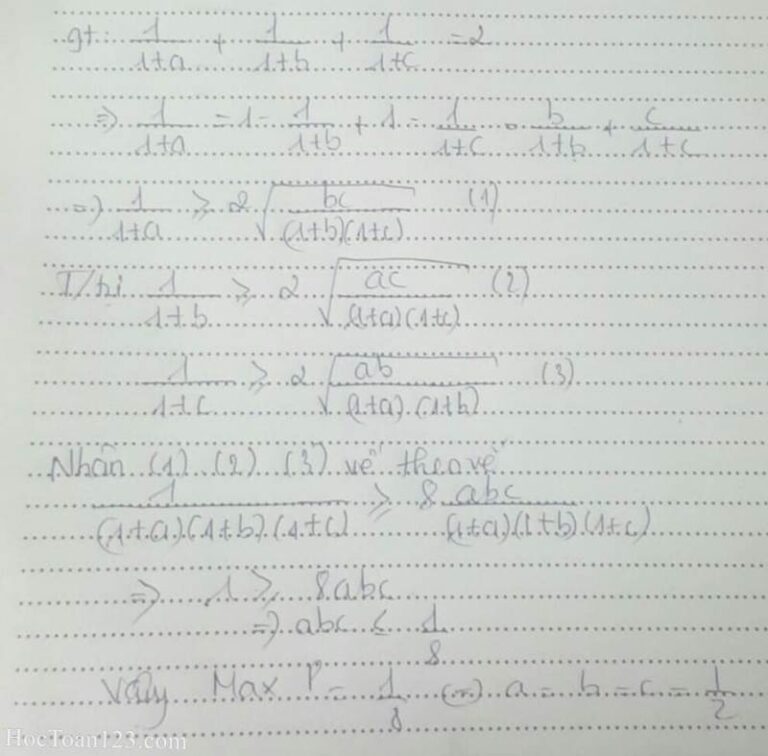 gt: 1/(1+a) + 1/(1+b) + 1/(1+c) = 2
=> 1/(1+a) = 1 - 1/(1+b) + 1 - 1/(1+c) = b/(1+b) + c/(1+c)
=> 1/(1+a) ≥ 2√(bc/((1+b)(1+c))) (1)
T/tự 1/(1+b) ≥ 2√(ac/((1+a)(1+c))) (2)
1/(1+c) ≥ 2√(ab/((1+a).(1+b))) (3)
Nhân (1) (2) (3) vế theo vế
1/((1+a).(1+b).(1+c)) ≥ 8abc/((1+a)(1+b).(1+c))
=> 1 ≥ 8abc
=> abc ≤ 1/8
Vậy Max P = 1/8 (=) a = b = c = 1/2
HocToan123.com